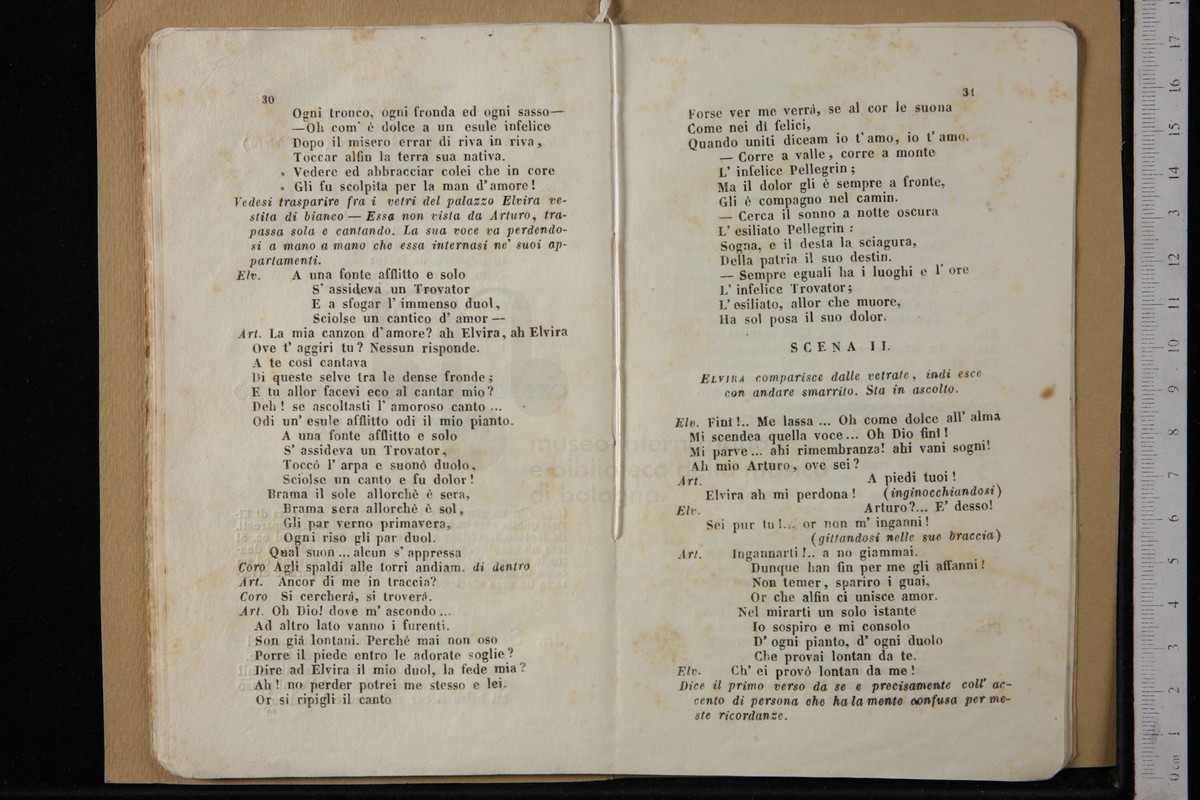 30
Ogni tronco, ogni fronda ed ogni sasso—
—Oh com' è dolce a un esule infelice
Dopo il misero errar di riva in riva,
Toccar alfin la terra sua nativa.
» Vedere ed abbracciar colei che in core
» Gli fu scolpita per la man d'amore!
Vedesi trasparire fra i vetri del palazzo Elvira ve-
stita di bianco — Essa non vista da Arturo, tra-
passa sola e cantando. La sua voce va perdendo-
si a mano a mano che essa internasi ne' suoi ap-
partamenti.
Elv. A una fonte afflitto e solo
S' assideva un Trovator
E a sfogar l' immenso duol,
Sciolse un cantico d' amor —
Art. La mia canzon d'amore? ah Elvira, ah Elvira
Ove t' aggiri tu? Nessun risponde.
A te così cantava
Di queste selve tra le dense fronde;
E tu allor facevi eco al cantar mio?
Deh! se ascoltasti l' amoroso canto ...
Odi un' esule afflitto odi il mio pianto.
A una fonte afflitto e solo
S' assideva un Trovator,
Toccò l' arpa e suonò duolo,
Sciolse un canto e fu dolor!
Brama il sole allorchè è sera,
Brama sera allorchè è sol,
Gli par verno primavera,
Ogni riso gli par duol.
Qual suon ... alcun s' appressa
Coro Agli spaldi alle torri andiam. di dentro
Art. Ancor di me in traccia?
Coro Si cercherà, si troverà.
Art. Oh Dio! dove m' ascondo ...
Ad altro lato vanno i furenti.
Son già lontani. Perchè mai non oso
Porre il piede entro le adorate soglie?
Dire ad Elvira il mio duol, la fede mia?
Ah! no perder potrei me stesso e lei.
Or si ripigli il canto
31
Forse ver me verrà, se al cor le suona
Come nei dì felici,
Quando uniti diceam io t'amo, io t' amo.
— Corre a valle, corre a monte
L' infelice Pellegrin;
Ma il dolor gli è sempre a fronte,
Gli è compagno nel camin.
— Cerca il sonno a notte oscura
L' esiliato Pellegrin :
Sogna, e il desta la sciagura,
Della patria il suo destin.
— Sempre eguali ha i luoghi e l' ore
L' infelice Trovator;
L' esiliato, allor che muore,
Ha sol posa il suo dolor.
SCENA II.
ELVIRA comparisce dalle vetrate, indi esce
con andare smarrito. Sta in ascolto.
Elv. Finì!.. Me lassa ... Oh come dolce all' alma
Mi scendea quella voce... Oh Dio finì!
Mi parve... ahi rimembranza! ahi vani sogni!
Ah mio Arturo, ove sei?
Art. A piedi tuoi!
Elvira ah mi perdona! (inginocchiandosi)
Elv. Arturo?... E' desso!
Sei pur tu!... or non m' inganni!
(gittandosi nelle sue braccia)
Art. Ingannarti!.. a no giammai.
Dunque han fin per me gli affanni!
Non temer, spariro i guai,
Or che alfin ci unisce amor.
Nel mirarti un solo istante
Io sospiro e mi consolo
D' ogni pianto, d' ogni duolo
Che provai lontan da te.
Elv. Ch' ei provò lontan da me!
Dice il primo verso da se e precisamente coll' ac-
cento di persona che ha la mente confusa per me-
ste ricordanze.